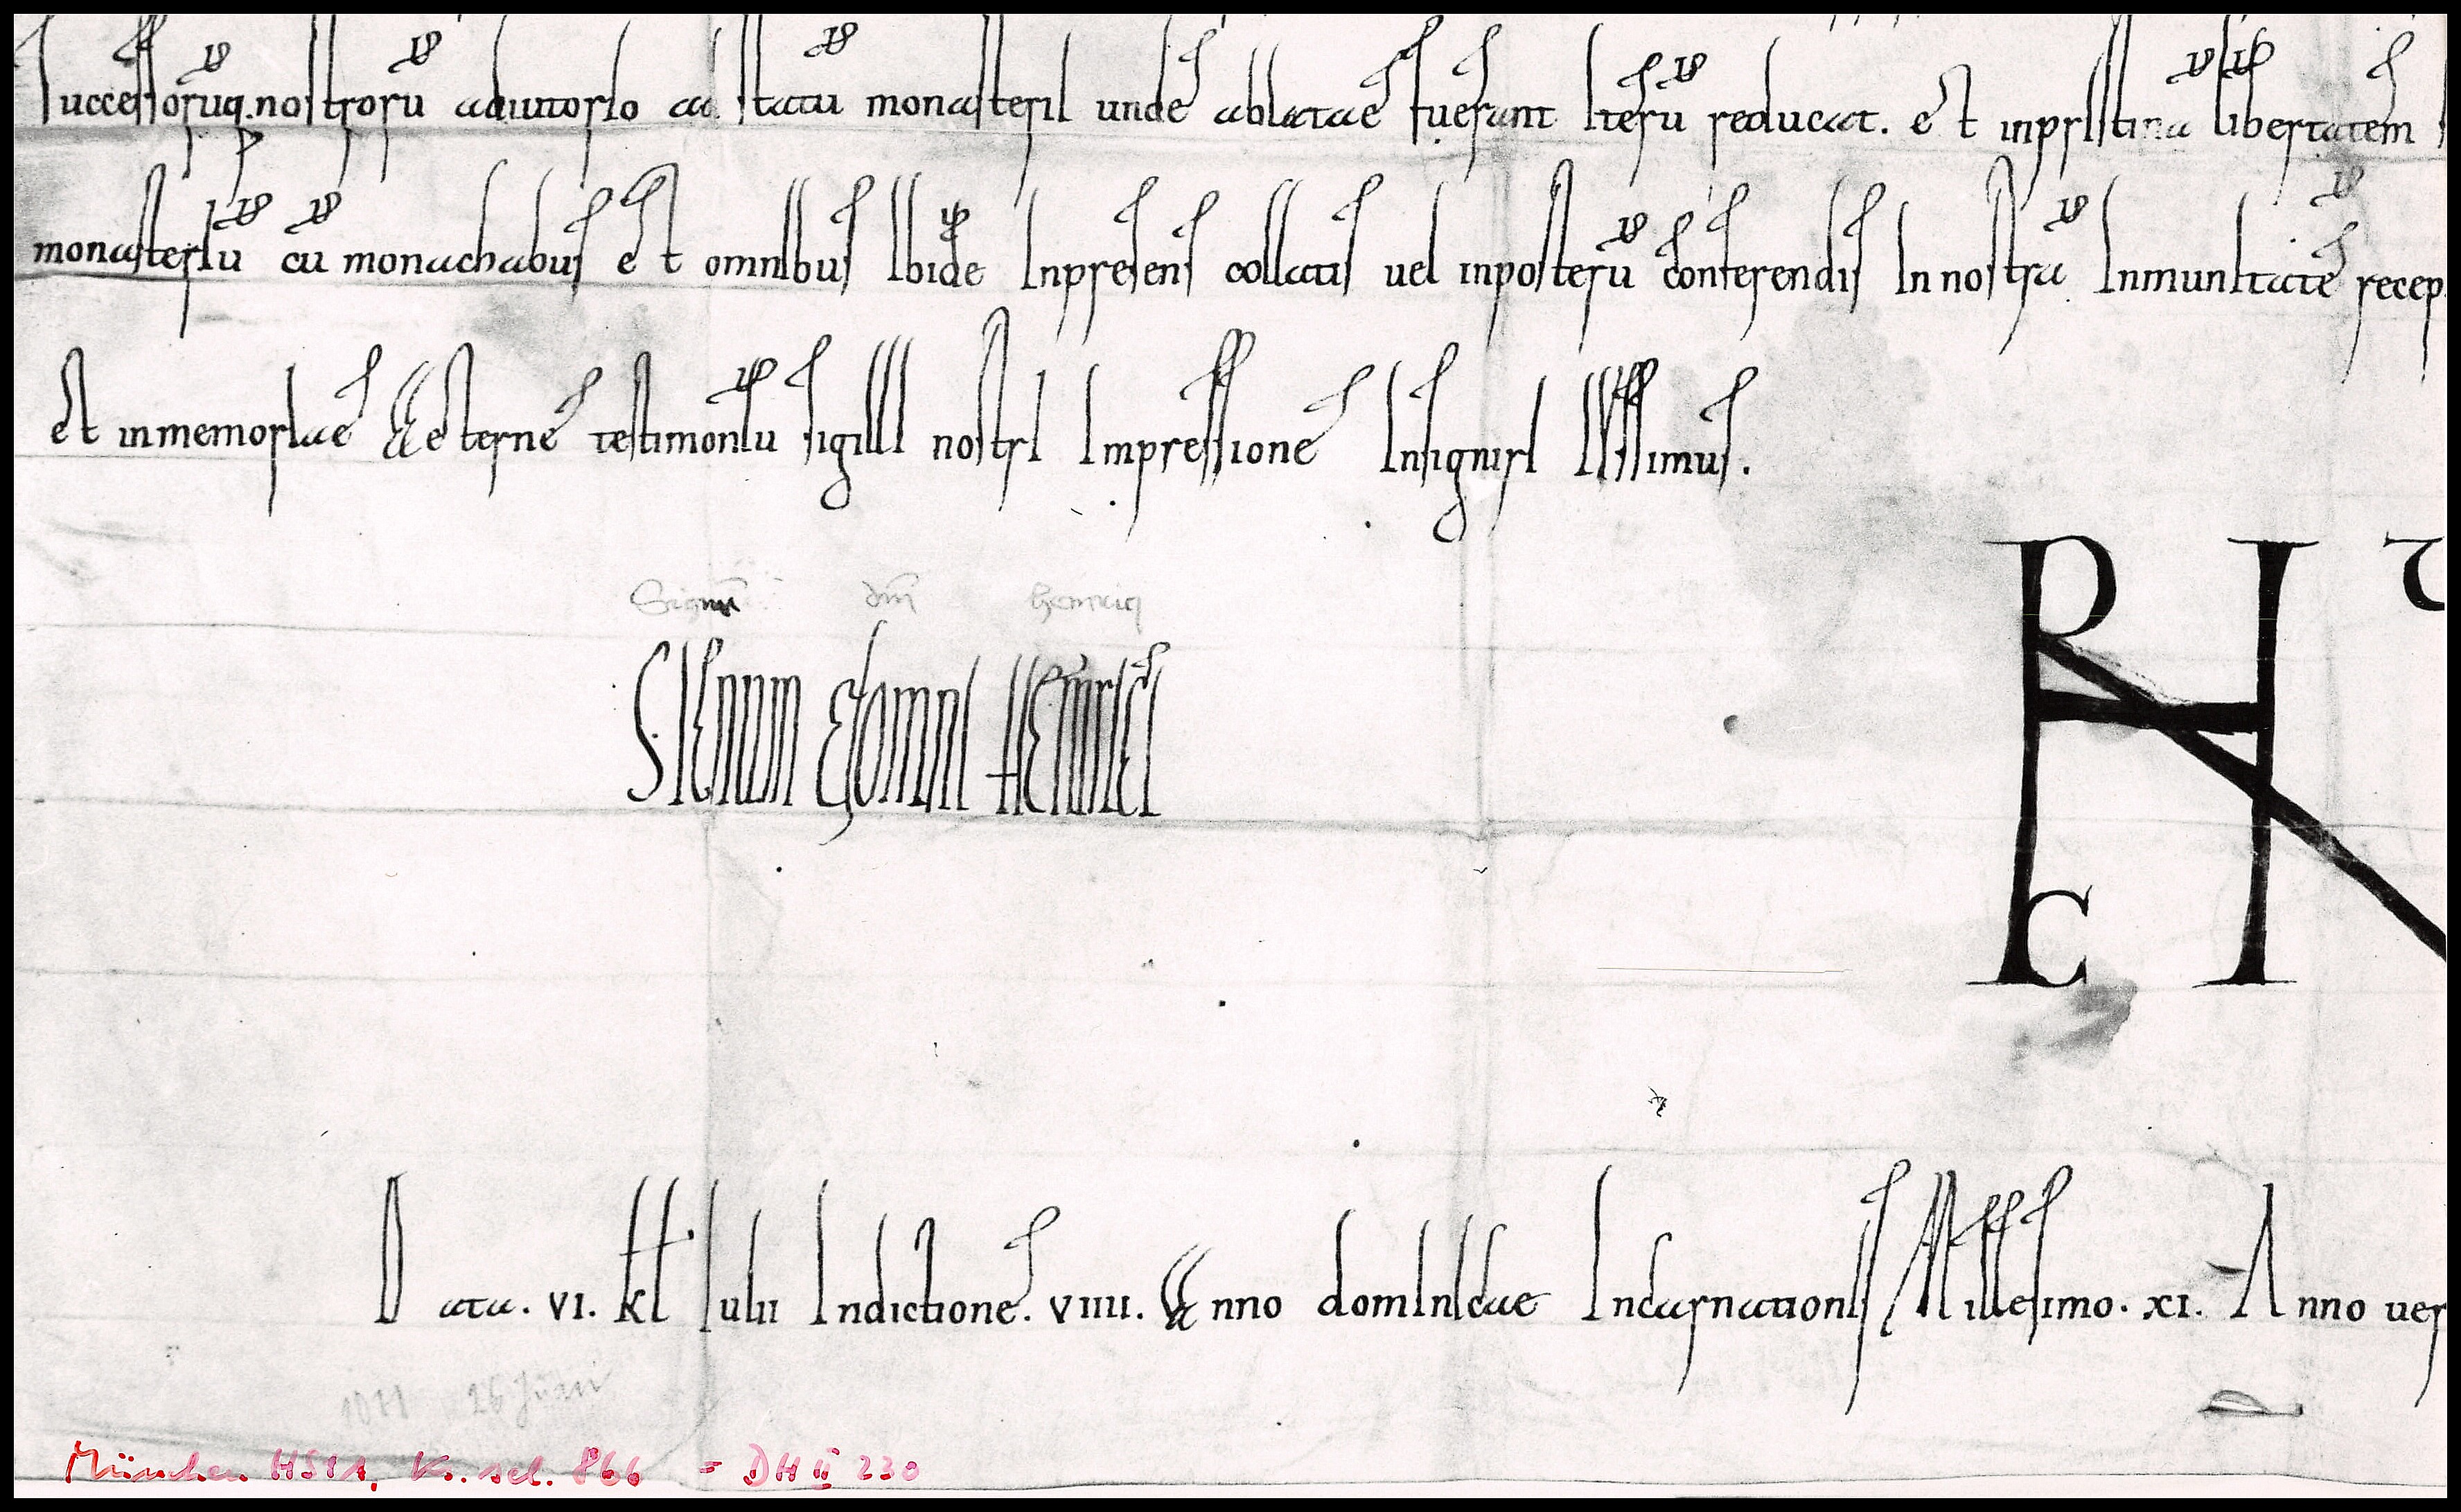 successorūq. nostrorū adiutorio ad statū monasterii unde ablatae fuerant iterū reducat. et inpristinā libertatem
monasteriū cū monachabus et omnibus ibidē inpresens collatis uel inposterū conferendis In nostrā Inmunitatē recep
Et inmemoriae aeternē testimoniū sigilli nostri Impressione Insigniri Iussimus.
Signū dm̄ heinrici
SIGNUM DOMNI HEINRICI
R H C
Data. VI. Kl Iulii Indictione. VIIII. Anno dominicae Incarnationis Millesimo. XI. Anno uer
1011 26 Juni
München HStA, K. sel. 866 = DH II 230